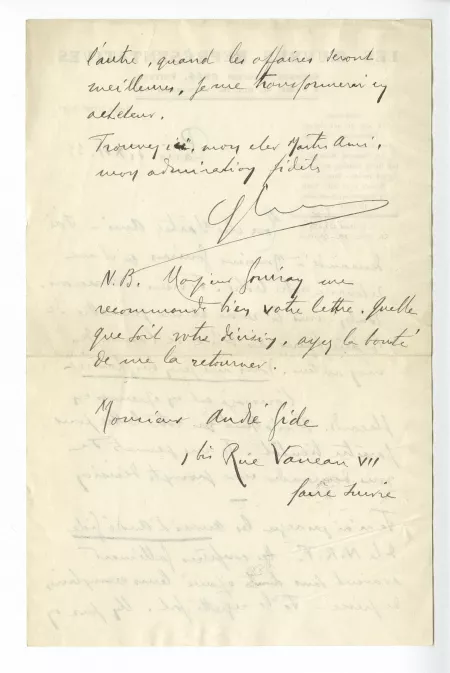 l'autre, quand les affaires seront
meilleures, je me transformerai en
acheteur.
Trouvez ici, mon cher Maître Ami,
mon admiration fidèle
N.B. Monsieur me
recommande bien votre lettre. Quelle
que soit votre décision, ayez la bonté
de me la retourner.
Monsieur André Gide
1 bis Rue Vaneau VII
faire suivre